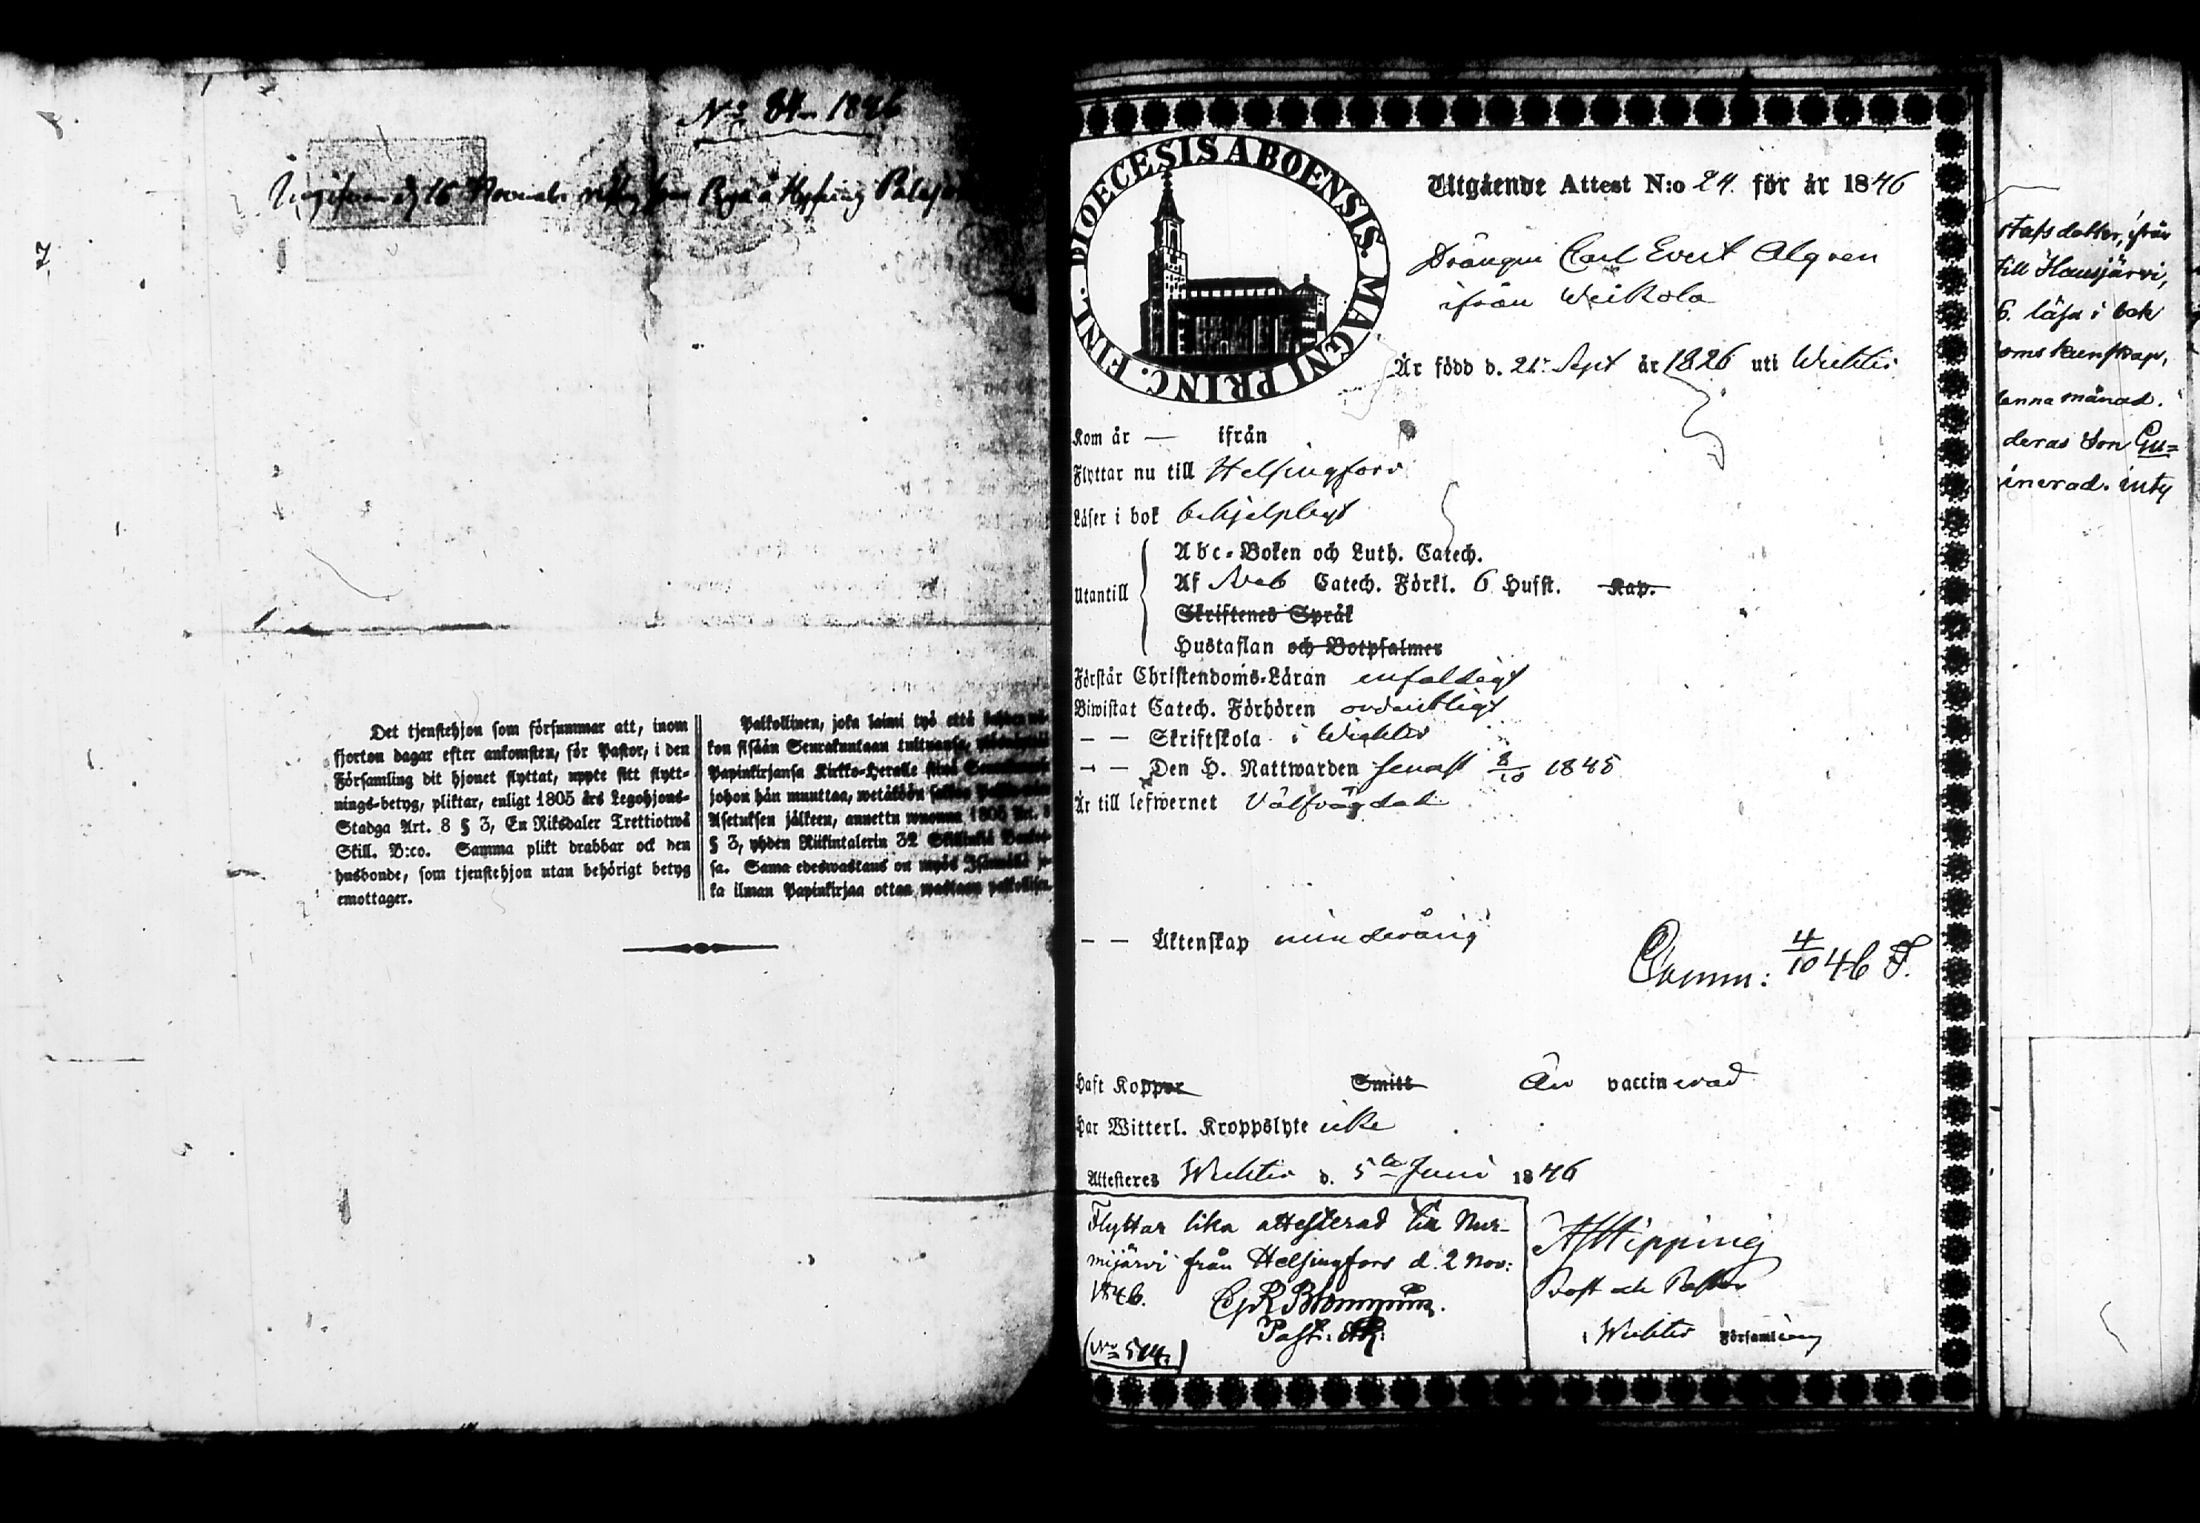 No 84 1846
Det tjenstehjon som försummar att, inom
fjorton dagar efter ankomsten, för Pastor, i den
Församling dit hjonet flyttat, uppte sitt flytt-
nings-betyg, pliktar, enligt 1805 års Legohjons-
Stadga Art. 8 § 3, En Riksdaler Trettiotwå
Skill. B:co. Samma plikt drabbar ock den
husbonde, som tjenstehjon utan behörigt betyg
emottager.
Palkollinen, joka laimi lyö että
kon sisään Seurakuntaan tultuansa,
Papinkirjansa Kirkko-Herralle siinä
johon hän muuttaa, wetäköön sakkoa
Asetuksen jälkeen, annettu wuonna 1805 Art. 8
§ 3, yhden Riikintalerin 32 Skillinkiä Banko-
sa. Sama edeswastaus on myös Isännällä jo-
ka ilman Papinkirjaa ottaa wastaan palkollisen.
DIOECESIS ABOENSIS. MAGNI PRINC. FINL.
Utgående Attest N:o 24. för år 1846
Drängen Carl Evert Algren
ifrån Weikola
Är född d. 21 Sept år 1826 uti Wichtis
Kom år — ifrån
Flyttar nu till Helsingfors
Läser i bok behjelpligt
Utantill
Abc-Boken och Luth. Catech.
Af Sveb Catech. Förkl. 6 Hufst. Kap.
Skriftenes Språk
Hustaflan och Botpsalmer
Förstår Christendoms-Läran enfaldigt
Biwistat Catech. Förhören ordentligt
— — Skriftskola i Wichtis
— — Den H. Nattwarden senast 8/10 1845
Är till lefwernet Välfrägdad
— — Äktenskap minderårig
Comm: 4/10 46 F.
Haft Koppor Smitt Är vaccinerad
Har Witterl. Kroppslyte icke
Attesteras Wichtis d. 5te Juni 1846
Flyttar lika attesterad till Nur-
mijärvi från Helsingfors d. 2 Nov:
1846.
Past:
(No 514.)
A J Hipping
Prost och Pastor
i Wichtis Församling
stafs dotter, ifrån
till Hausjärvi,
6. läsa i bok
oms kunskap,
denna månad.
deras Son Gu=
inerad. inty